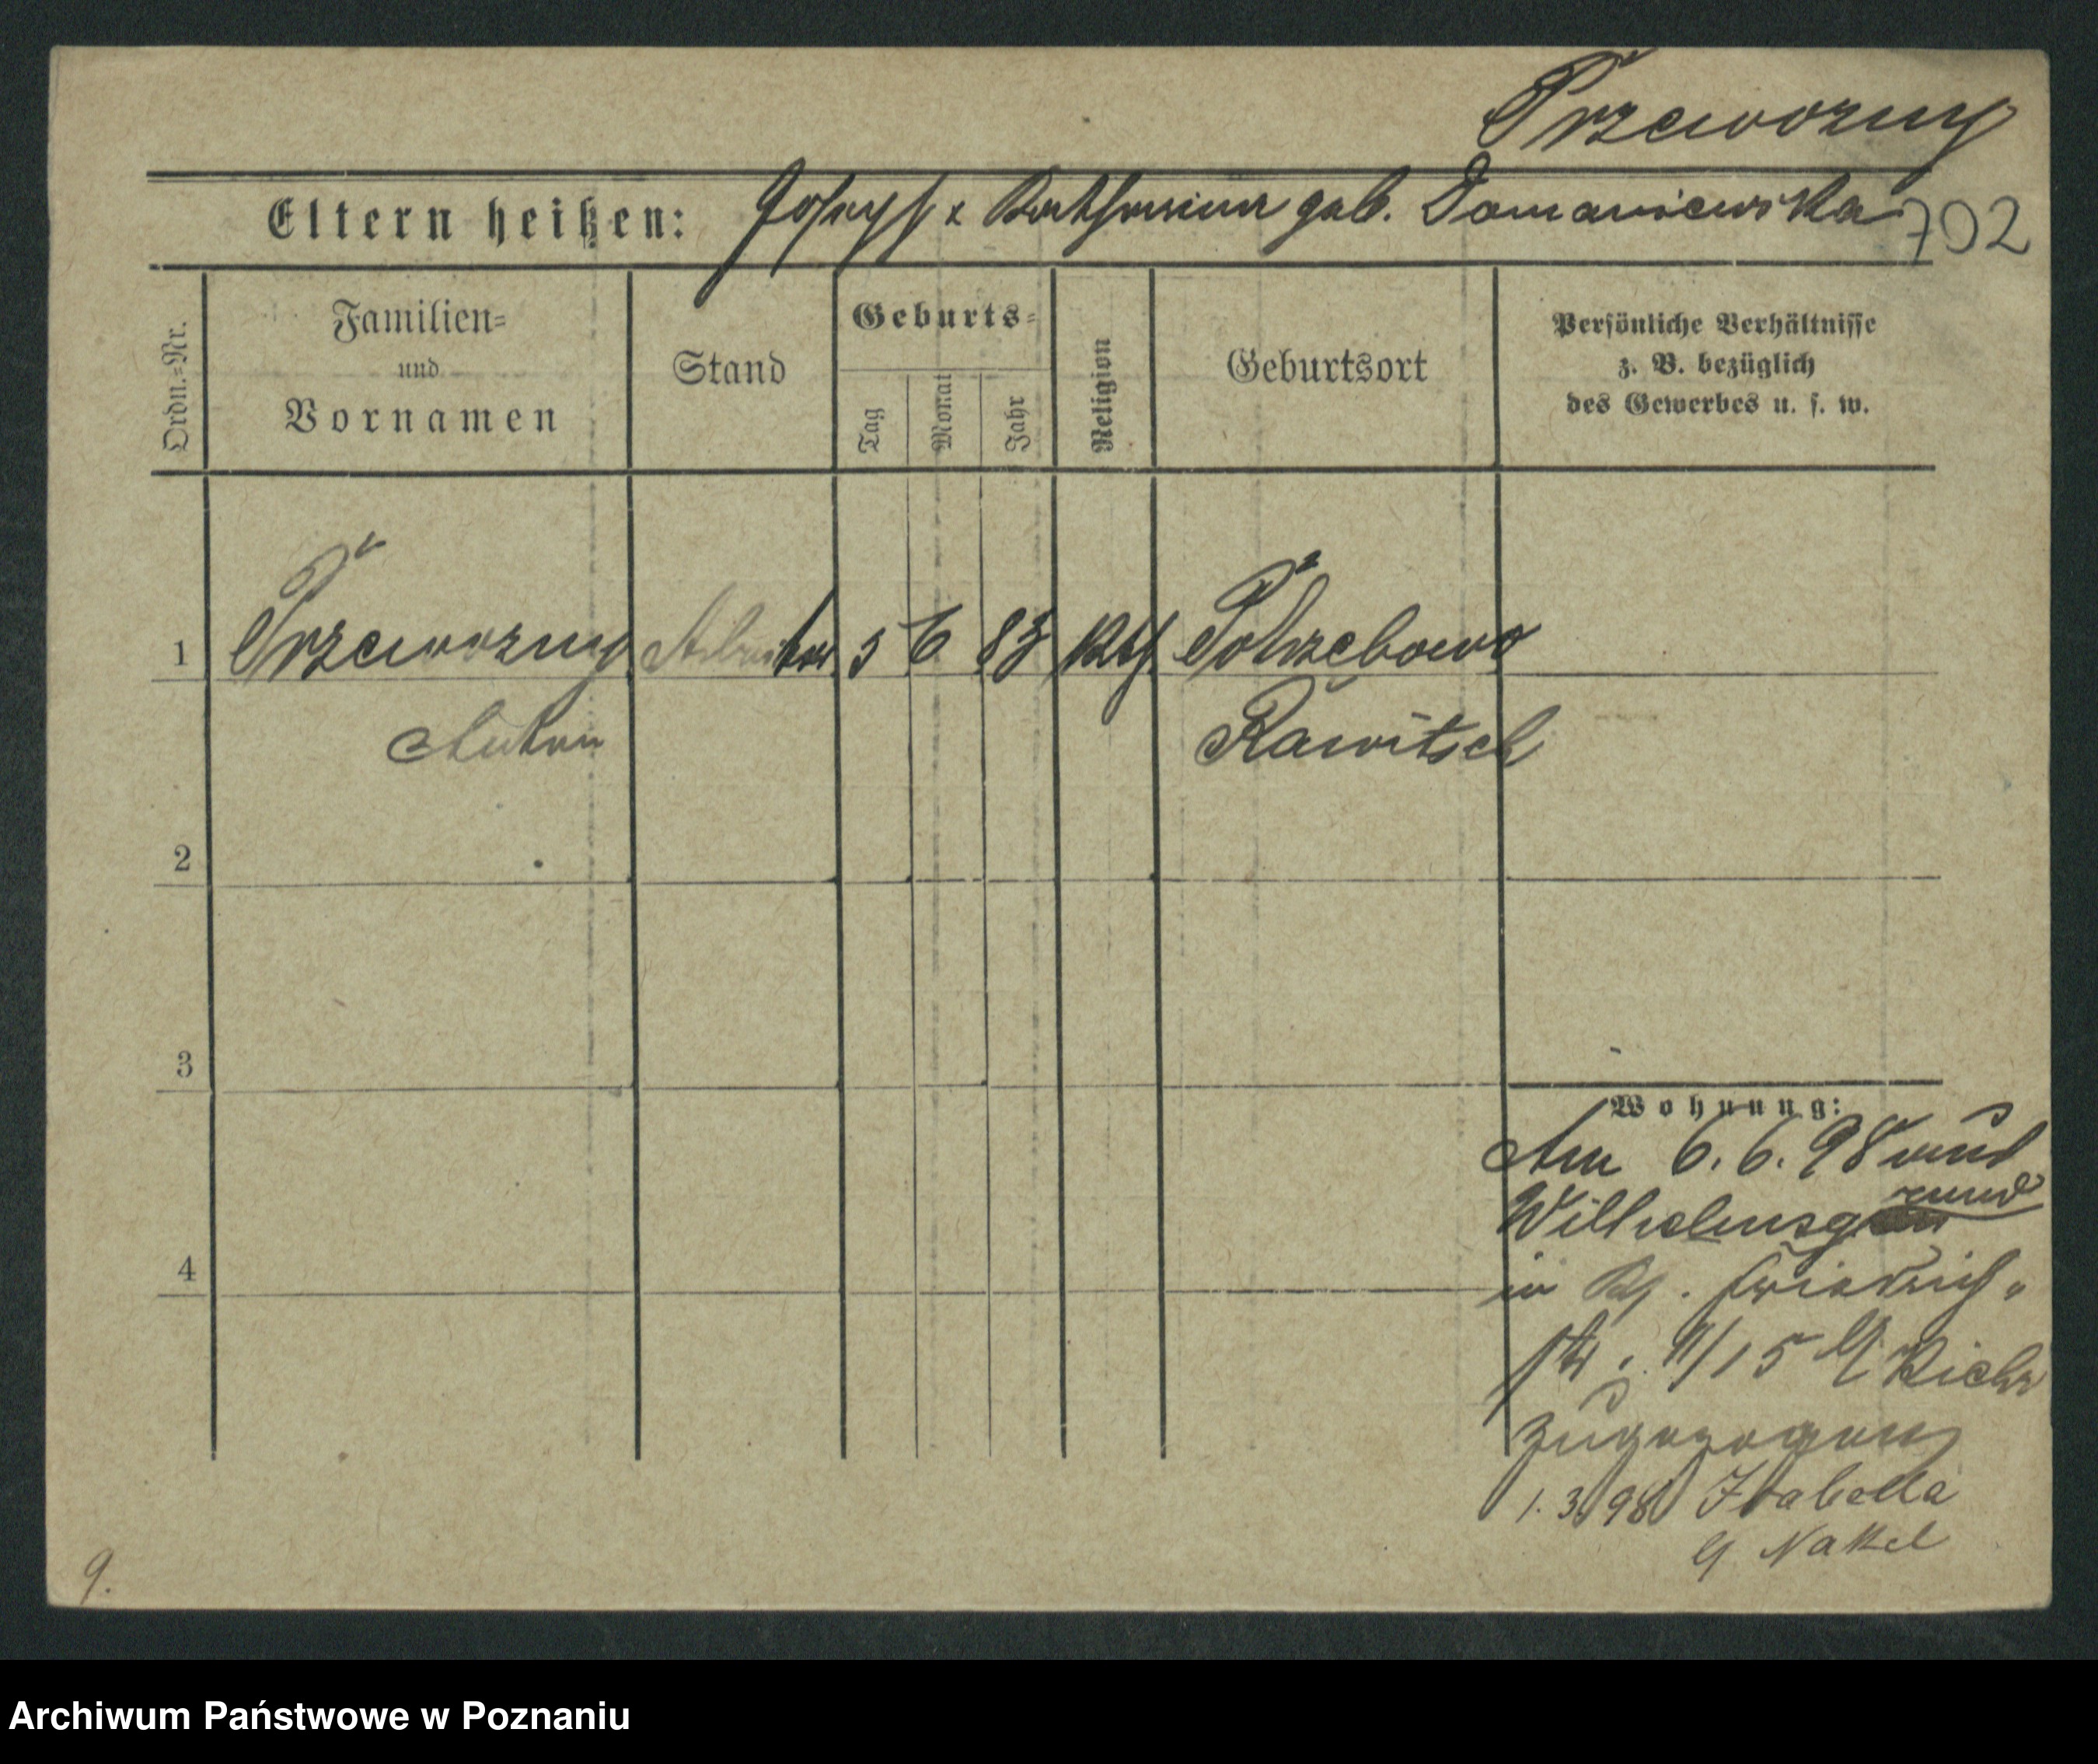 Przewozny
Eltern heißen: Joseph & Katharina geb. Domaniewska 702
Ordn.=Nr.
Familien=
und
Vornamen
Stand
Geburts=
Tag
Monat
Jahr
Religion
Geburtsort
Persönliche Verhältnisse
z. B. bezüglich
des Gewerbes u. s. w.
1 Przewozny Arbeiter 5 6 83 kth. Potrzebowo
Anton Rawitsch
2
3
Wohnung:
Am 6.6.98 aus
Wilhelms
4
in Friedrich-
str. 15
zugezogen
1.3.98 Isabella
Nakel
9.
Archiwum Państwowe w Poznaniu